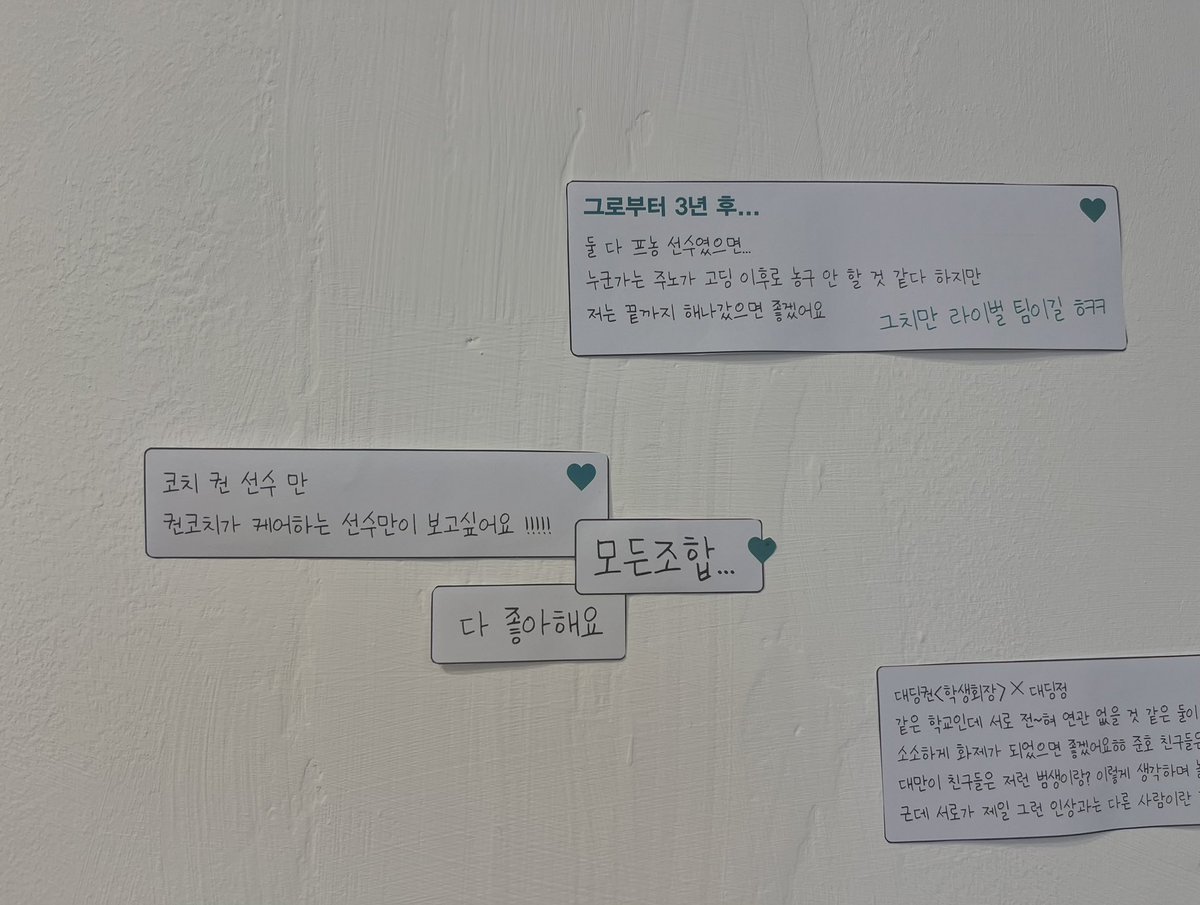 그로부터 3년 후...
둘 다 프농 선수였으면...
누군가는 주노가 고딩 이후로 농구 안 할 것 같다 하지만
저는 끝까지 해나갔으면 좋겠어요
그치만 라이벌 팀이길 ㅎㅋㅋ
코치 권 선수 만
권코치가 케어하는 선수만이 보고싶어요 !!!!!
모든조합...
다 좋아해요
대딩권<학생회장> X 대딩정
같은 학교인데 서로 전~혀 연관 없을 것 같은 둘이
소소하게 화제가 되었으면 좋겠어요ㅎㅎ 준호 친구들은
대만이 친구들은 저런 범생이랑? 이렇게 생각하며
근데 서로가 제일 그런 인상과는 다른 사람이란